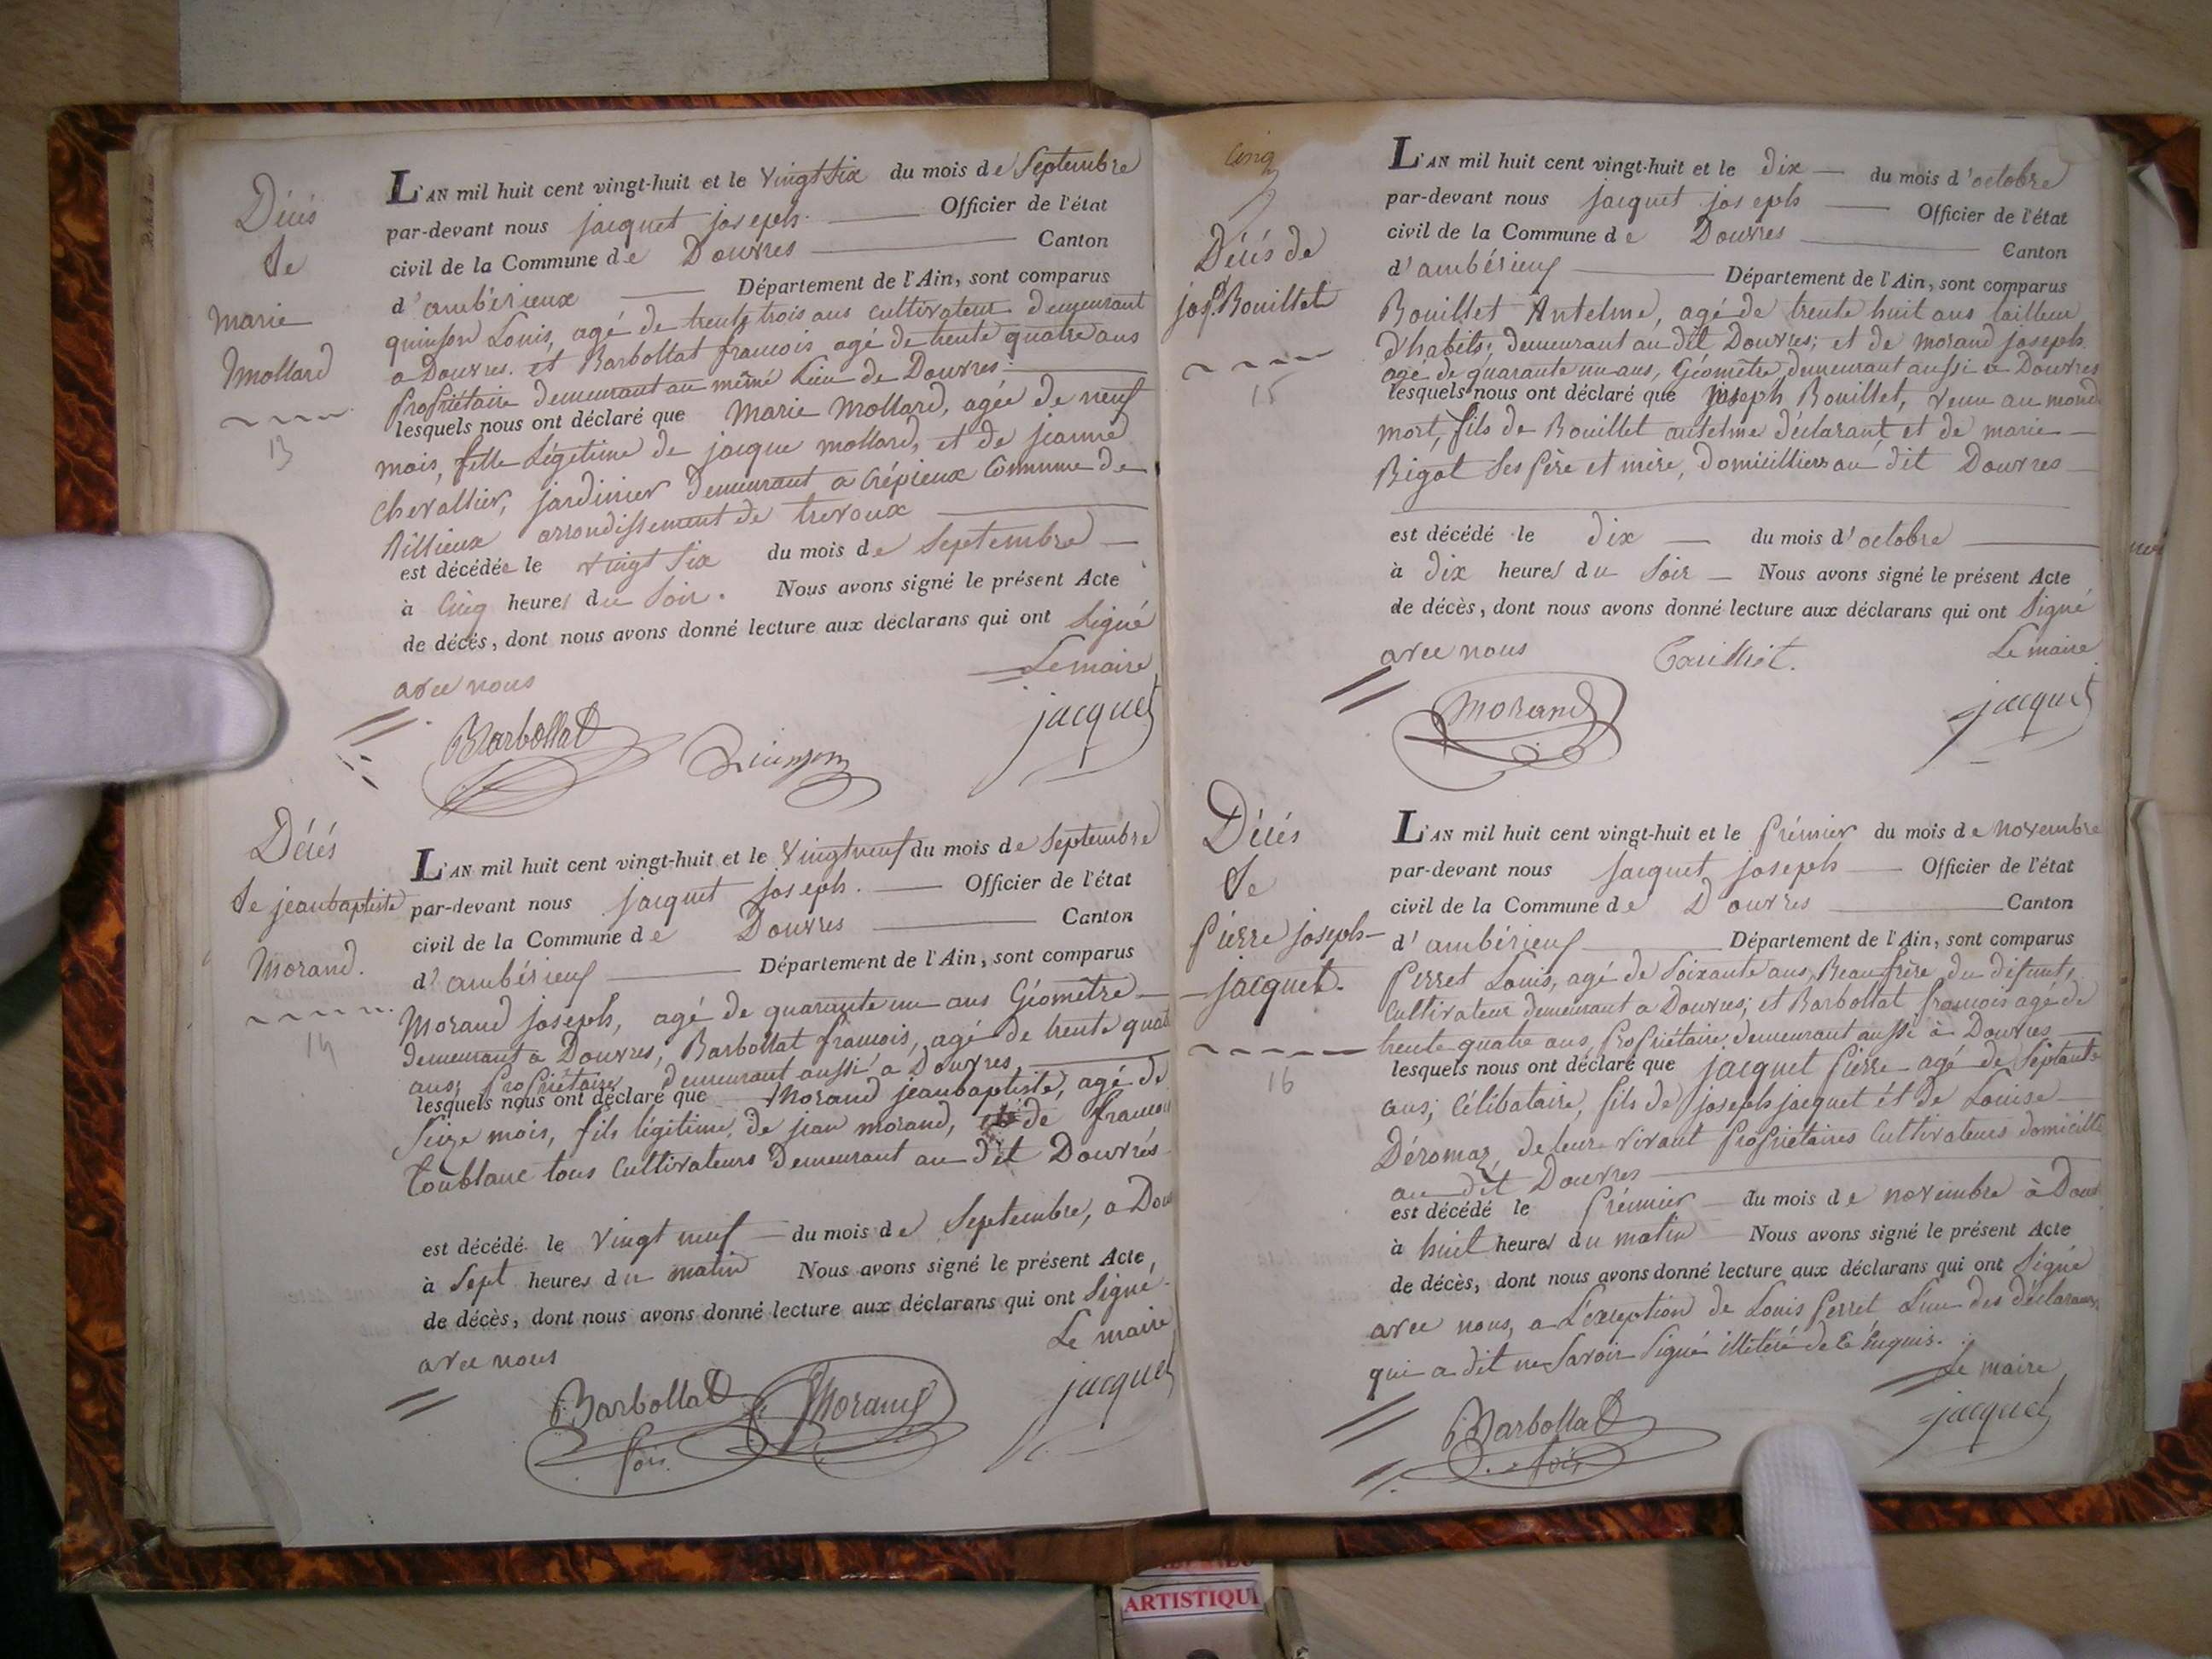 Décés
de
Marie
Mollard
13
L'AN mil huit cent vingt-huit et le vingt six du mois de Septembre
par-devant nous jacquet joseph Officier de l'état
civil de la Commune de Douvres Canton
d'ambérieux Département de l'Ain, sont comparus
quinson Louis, agé de trente trois ans cultivateur demeurant
a Douvres. et Barbollat francois agé de trente quatre ans
Propriétaire demeurant au même Lieu de Douvres
lesquels nous ont déclaré que Marie Mollard, agée de neuf
mois, fille Légetime de jacque mollard, et de jeanne
Chevallier, jardinier demeurant a Crépieux Commune de
Rillieux arrondissement de trevoux
est décédée le vingt Six du mois de Septembre
à Cinq heures du Soir. Nous avons signé le présent Acte
de décès, dont nous avons donné lecture aux déclarans qui ont Signé
avec nous
Le maire
Barbollat Quinson jacquet
Décés
de jeanbaptiste
Morand.
14
L'AN mil huit cent vingt-huit et le Vingt neuf du mois de Septembre
par-devant nous jacquet joseph. Officier de l'état
civil de la Commune de Douvres Canton
d'ambérieuf Département de l'Ain, sont comparus
Morand joseph, agé de quarante un ans Géomètre
demeurant a Douvres, Barbollat francois, agé de trente quat
ans; Propriétaire demeurant aussi a Douvres
lesquels nous ont déclaré que Morand jeanbaptiste, agé de
Seize mois, fils légitime de jean morand, de francoi
Toublanc tous Cultivateurs demeurant au dit Douvres
est décédé le Vingt neuf du mois de Septembre, a Dou
à Sept heures du matin Nous avons signé le présent Acte
de décès, dont nous avons donné lecture aux déclarans qui ont Signé
avec nous
Le maire
Barbollat Morand jacquet
fois.
Cinq
Décés de
jos.h Bouillet
15
L'AN mil huit cent vingt-huit et le dix du mois d'octobre
par-devant nous jacquet joseph Officier de l'état
civil de la Commune de Douvres Canton
d'ambérieuf Département de l'Ain, sont comparus
Bouillet Antelme, agé de trente huit ans tailleur
d'habits; demeurant au dit Douvres; et de morand joseph
agé de quarante un ans, Géomètre demeurant aussi a Douvres
lesquels nous ont déclaré que joseph Bouillet, venu au mond
mort, fils de Bouillet antelme déclarant et de marie
Bigot Ses Père et mère, domicilliers au dit Douvres
est décédé le dix du mois d'octobre
à dix heures du Soir Nous avons signé le présent Acte
de décès, dont nous avons donné lecture aux déclarans qui ont Signé
avec nous Le maire
Morand jacquet
Décés
de
Pierre joseph
jacquet.
16
L'AN mil huit cent vingt-huit et le Prémier du mois de novembre
par-devant nous jacquet joseph Officier de l'état
civil de la Commune de Douvres Canton
d'ambérieuf Département de l'Ain, sont comparus
Perret Louis, agé de Soixante ans, Beaufrère du défunt,
Cultivateur demeurant a Douvres; et Barbollat francois agé de
trente quatre ans, Propriétaire demeurant aussi à Douvres
lesquels nous ont déclaré que jacquet Pierre agé de Septante
ans; Célibataire, fils de joseph jacquet et de Louise
Déromaz, de leur vivant Propriétaires Cultivateurs domicilié
au dit Douvres
est décédé le Prémier du mois de novembre à Douv
à huit heures du matin Nous avons signé le présent Acte
de décès, dont nous avons donné lecture aux déclarans qui ont Signé
avec nous, a L'exception de Louis Perret L'un des déclarans
qui a dit ne Savoir Signé illitéré de Ce Enquis.
Le maire
Barbollat jacquet
fois
ARTISTIQU